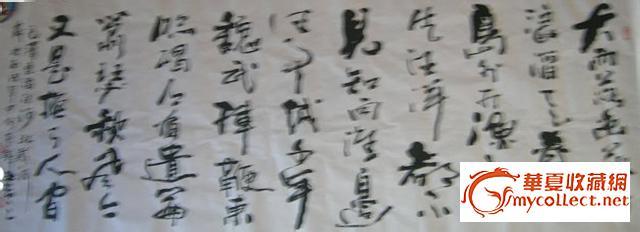 大雨落幽
浪滔天秦
島外打漁
片汪洋都不
見知向誰邊
往事越千年
魏武揮鞭東
臨碣石有遺篇
蕭瑟秋風今
又是換了人間
華夏收藏網
mycollect.net